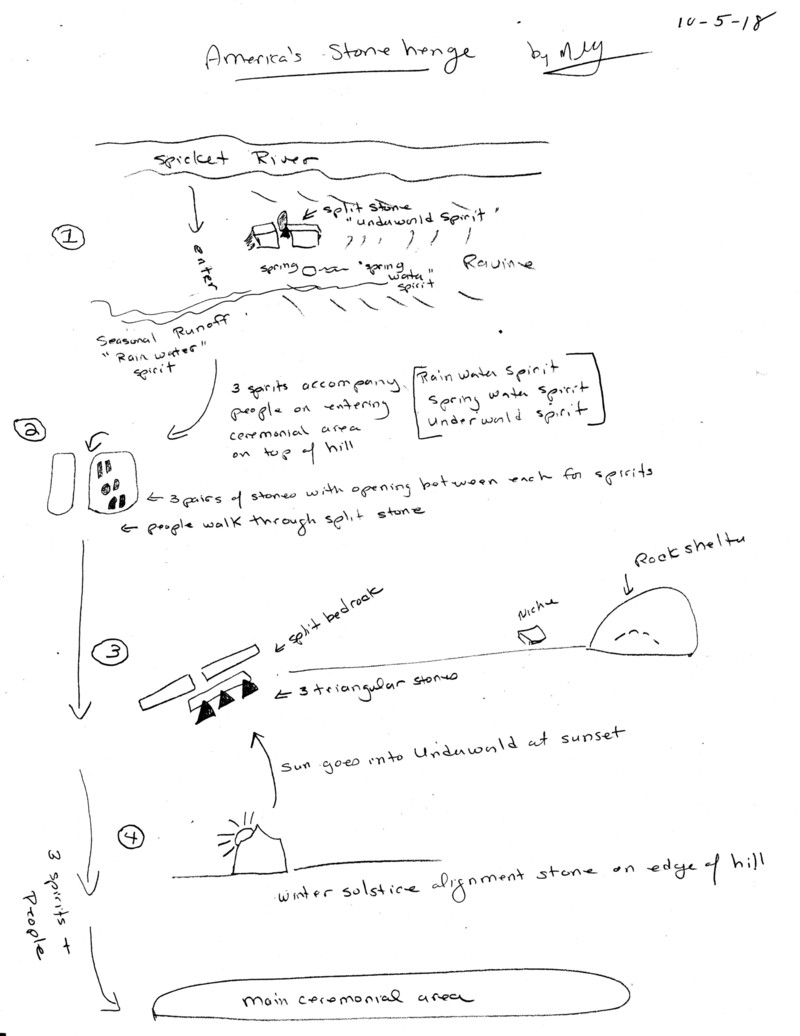 10-5-18
America's Stonehenge
by
Spicket River
① enter
split stone
"underworld spirit"
spring
"spring
water"
spirit
Ravine
Seasonal Runoff
"Rain water"
spirit
②
3 spirits accompany
people on entering
ceremonial area
on top of hill
Rain water spirit
spring water spirit
underworld spirit
← 3 pairs of stones with opening between each for spirits
← people walk through split stone
③
← split bedrock
← 3 triangular stones
Niche
Rock shelter
Sun goes into Underworld at sunset
④
winter solstice alignment stone on edge of hill
3 spirits +
People
main ceremonial area